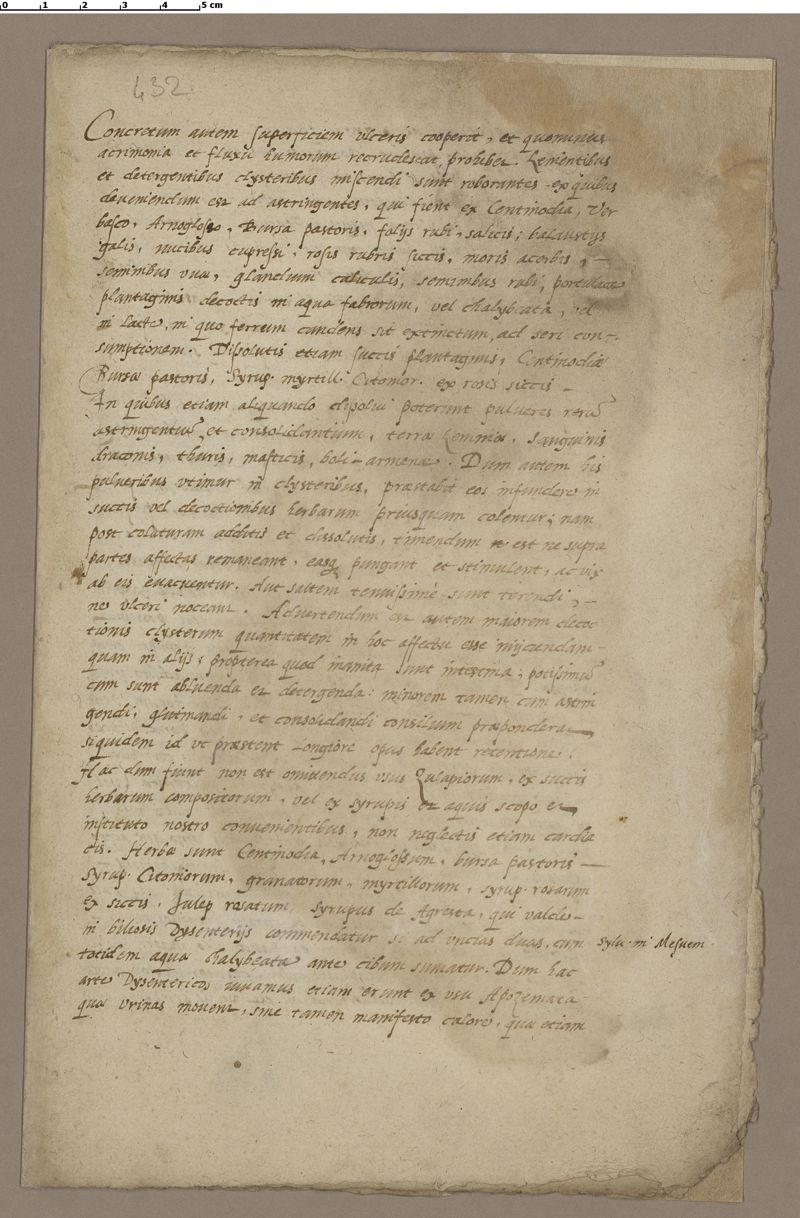 432.
Concretum autem superficiem vlceris cooperit, et quominus
acrimonia et fluxu humorum recrudescat, prohibet. Lenientibus
et detergentibus clysteribus miscendi sunt roborantes ex quibus
deveniendum est ad astringentes, qui fient ex Centinodia, Ver
basco, Arnoglosso, Bursa pastoris, folijs rubi, salicis; balaustijs
galis, nucibus cupressi, rosis rubris siccis, moris acerbis, –
seminibus vuae, glandium caliculis, seminibus rubi, portulacae
plantaginis decoctis in aqua fabrorum, vel chalybeata, vel
in lacte, in quo ferrum candens sit extinctum, ad seri con-
sumptionem. Dissolutis etiam succis plantaginis, Centinodiae
Bursae pastoris, Syrup. myrtill. Citomor. ex rosis siccis –
In quibus etiam aliquando dissolui poterunt pulueres rerū
astringentiū et consolidantium, terrae Lemniae, Sanguinis
draconis, thuris, masticis, boli armenae. Dum autem his
pulueribus vtimur in clysteribus, praestabit eos infundere in
succis vel decoctionibus herbarum priusquam colentur; nam
post colaturam additis et dissolutis, timendum est ne supra
partes affectas remaneant, easq pungant et stimulent, ac vix
ab eis evacuentur. Aut saltem tenuissime sunt terendi, –
ne vlceri noceant. Advertendum est autem maiorem decoc
tionis clysterum quantitatem in hoc affectu esse inijciendam
quam in alijs; propterea quod inanita sunt intestina; potissimū
cum sunt abluenda et detergenda: minorem tamen cum astrin
gendi, glutinandi, et consolidandi consilium praeponderat
siquidem id vt praestent longiore opus habent retentione.
Hac dum fiunt non est omittendus vsus Iulapiorum, ex succis
herbarum compositorum, vel ex syrupis et aquis scopo et
instituto nostro convenientibus, non neglectis etiam cardia
cis. Herbae sunt Centinodia, Arnoglossum, bursa pastoris –
Syrup. Citoniorum, granatorum, myrtillorum, syrup. rosarum
ex siccis. Julep rosatum, Syrupus de Agresta, qui valde –
in biliosis Dysenterijs commendatur si ad vncias duas, cum
Sylu. in Mesuem.
totidem aquae chalybeatae ante cibum sumatur. Dum hac
arte Dysentericos iuuamus etiam erunt ex vsu Apozemata
quae vrinas movent, sine tamen manifesto calore, quae etiam